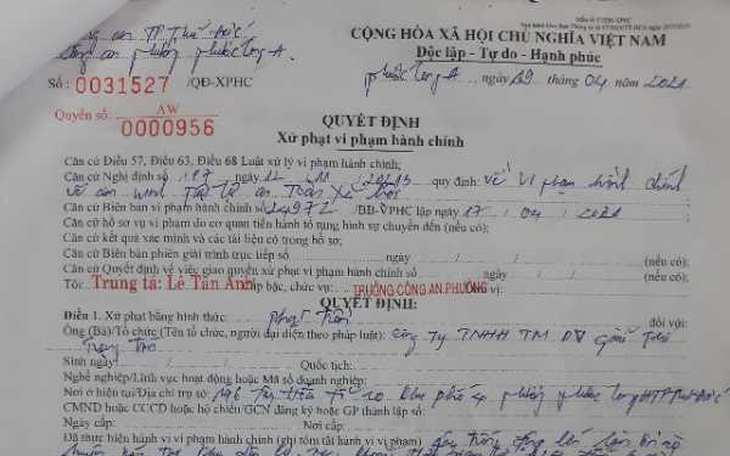 Công an TP Thủ Đức
CỘNG HÒA XÃ HỘI CHỦ NGHĨA VIỆT NAM
Công an phường phước long A
Độc lập - Tự do - Hạnh phúc
Số: 0031527 /QĐ-XPHC
phước long A, ngày 19 tháng 04 năm 2021
Quyển số: AW
0000956
QUYẾT ĐỊNH
Xử phạt vi phạm hành chính
Căn cứ Điều 57, Điều 63, Điều 68 Luật xử lý vi phạm hành chính;
Căn cứ Nghị định số 167 ngày 12 / 11 / 2013 quy định: về vi phạm hành chính
về an ninh trật tự an toàn xã hội
Căn cứ Biên bản vi phạm hành chính số 24972 /BB-VPHC lập ngày 17 / 04 / 2021
Căn cứ hồ sơ vụ vi phạm do cơ quan tiến hành tố tụng hình sự chuyển đến (nếu có);
Căn cứ kết quả xác minh và các tài liệu có trong hồ sơ;
Căn cứ Biên bản phiên giải trình trực tiếp số ngày / / (nếu có);
Căn cứ Quyết định về việc giao quyền xử phạt vi phạm hành chính số ngày / / (nếu có);
Tôi: Trung tá: Lê Tấn Anh cấp bậc, chức vụ: TRƯỞNG CÔNG AN PHƯỜNG vị:
QUYẾT ĐỊNH:
Điều 1. Xử phạt bằng hình thức: phạt tiền đối với:
Ông (Bà)/Tổ chức (Tên tổ chức, người đại diện theo pháp luật): Công Ty TNHH TM DV
Sinh ngày / / Quốc tịch:
Nghề nghiệp/Lĩnh vực hoạt động hoặc Mã số doanh nghiệp:
Nơi ở hiện tại/Địa chỉ trụ sở: khu phố 4 phường phước long TP Thủ Đức
CMND hoặc CCCD hoặc hộ chiếu/GCN đăng ký hoặc GP thành lập số:
Ngày cấp: Nơi cấp:
Đã thực hiện hành vi vi phạm hành chính (ghi tóm tắt hành vi vi phạm) gây tiếng động lớn